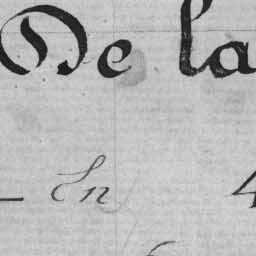 De la
— En 4